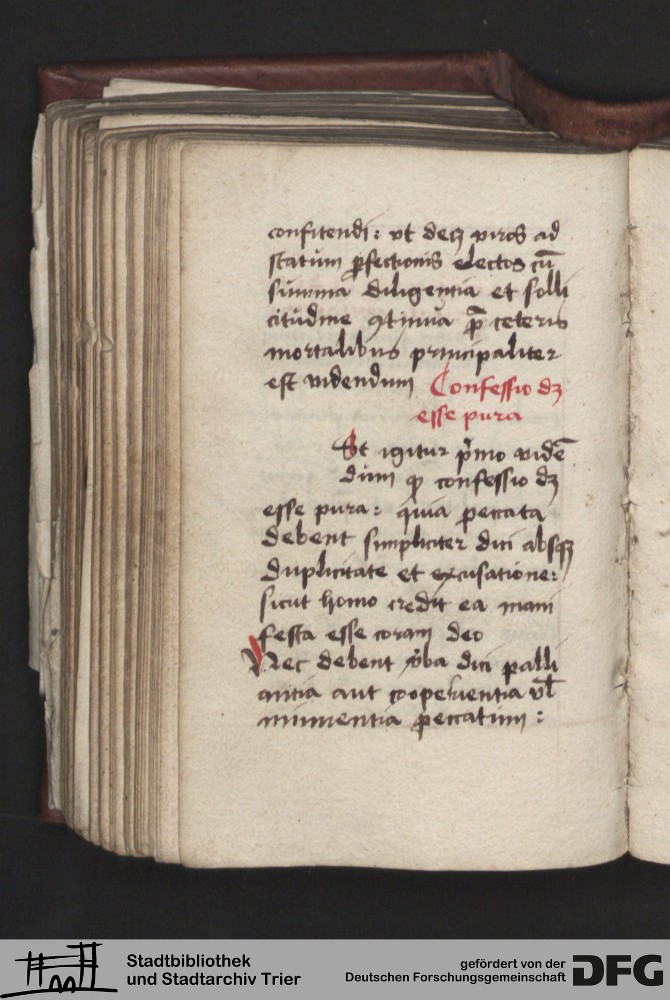 confitendi: vt decꝫ viros ad
statum ꝑfectionis electos cū
summa diligentia et solli
citudine ꝯtinua p̄ ceteris
mortalibus principaliter
est videndum Confessio dꝫ
esse pura
Et igitur pͥmo vidē
dum ꝙ confessio dꝫ
esse pura: quia peccata
debent simpliciter dici absqꝫ
duplicitate et excusatione:
sicut homo credit ea mani
festa esse coram deo
Nec debent v̓ba dici palli
antia aut cooperientia vl̄
minuentia peccatum:
Stadtbibliothek
und Stadtarchiv Trier
gefördert von der
Deutschen Forschungsgemeinschaft
DFG